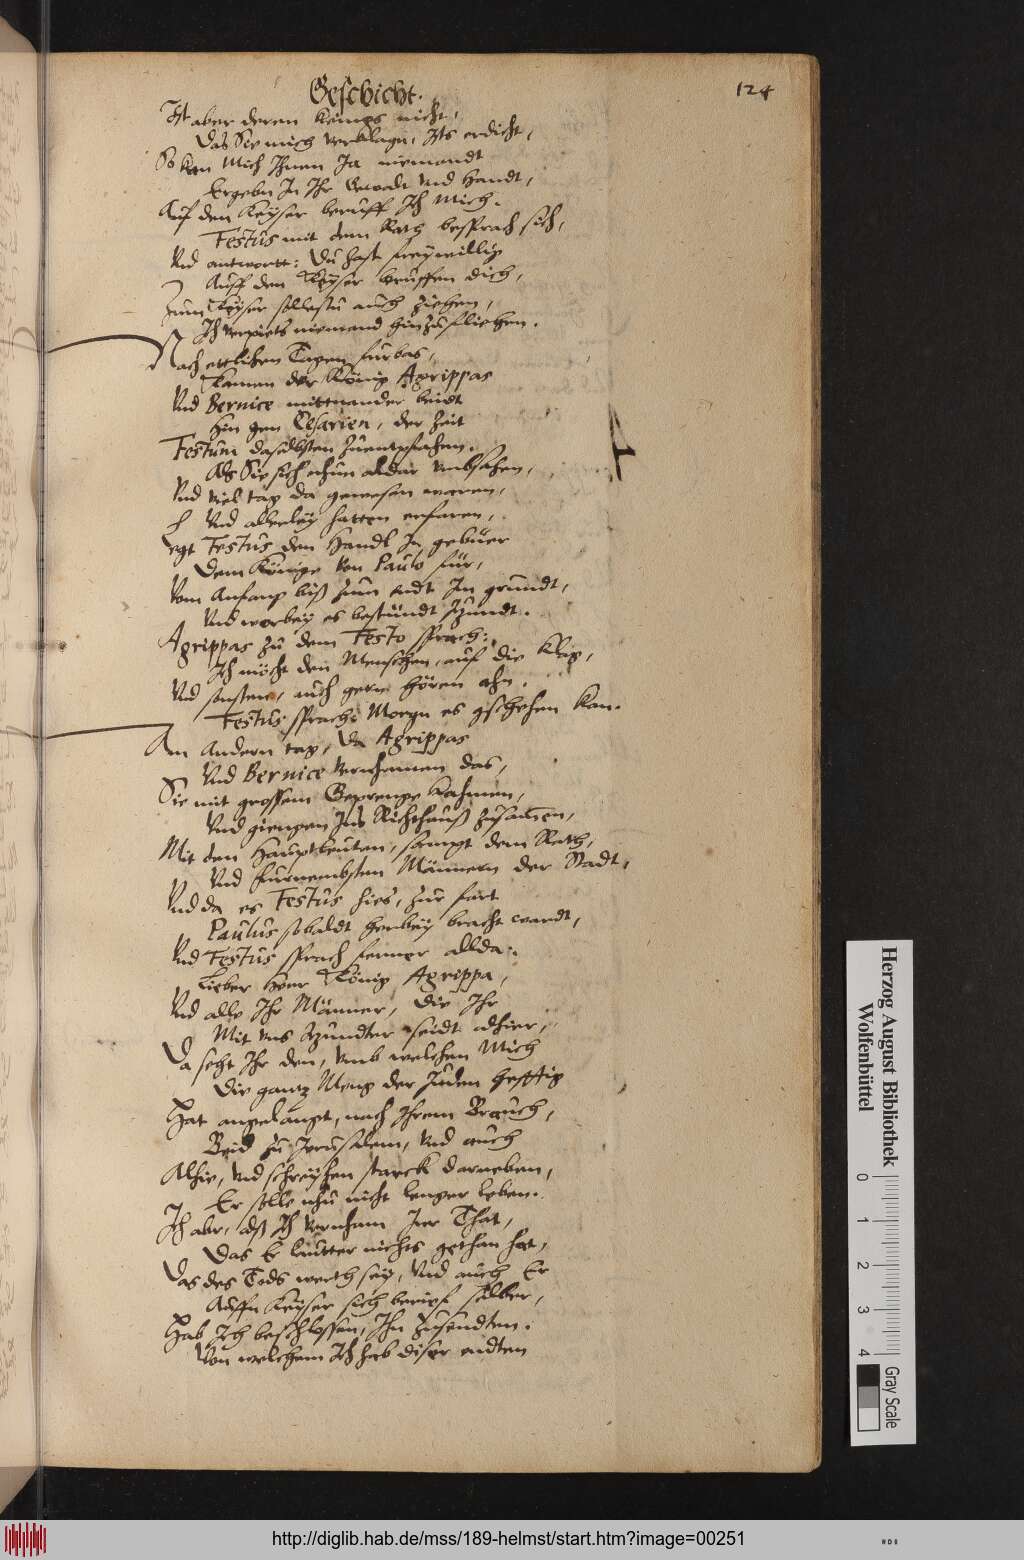 Geschicht. 124
Ist aber deren keines nicht,
Das Sie mich verklagn, Ists erdicht,
So kan Mich Ihnen Ja niemandt
Ergebn In Ihr Gewalt vnd Handt,
Auf den Keyser beruff Ich Mich.
Festus mit dem Rath besprach sich,
Vnd antwortt: Du hast freywillig
Auff den Keyser beruffen dich,
Zum Keyser sollestu auch ziehen,
Ich niemand hinzufliehen.
Nach ettlichen Tagen furbas,
Kamen der König Agrippas
Vnd Bernice mittnander beidt
Hin gen Cesarien, der Zeit
Festum daselbsten zuempfahen.
Als Sie sich nhun aldar vmbsahen,
Vnd viel tag da gewesen waren,
Vnd allerley hatten erfaren,
Legt Festus den Handl In gebuer
Dem Könige von Paulo für,
Vom Anfang biß zum endt Im grundt,
Vnd worbey es bestündt Itzundt.
Agrippas zu dem Festo sprach:
Ich möcht den Menschen, auf die Klag,
Vnd sonsten, auch gern hören ahn.
Festus sprach: Morgn es gschehen kan.
Am Andern tag, da Agrippas
Vnd Bernice vernhamen das,
Sie mit grossem Geprenge kahmen,
Vnd giengen Ins Richthauß zusamen,
Mit den Hauptleuten, sampt dem Rath,
Vnd furnembsten Männern der Stadt,
Vnd da es Festus hies, zur fart
Paulus sobaldt herbey bracht wardt,
Vnd Festus sprach ferner allda:
Lieber Herr König Agrippa,
Vnd alle Ihr Männer, die Ihr
Mit vns Itzundter seidt alhier,
Da seht Ihr den, vmb welchen Mich
Die gantz Meng der Juden hefftig
Hat angelangt, nach Ihrem Brauch,
Beid zu Jerusalem, vnd auch
Alhie, vnd schreyhen starck darneben,
Er solle nhu nicht lenger leben.
Ich abr, alß Ich vernham Irer That,
Das Er lautter nichts gethan hat,
Das des Tods werth sey, vnd auch Er
Auffn Keyser sich berieft selber,
Hab Ich beschlossen, Ihn zusendten.
Von welchem Ich hab diser endten
Herzog August Bibliothek
Wolfenbüttel
0 1 2 3 4
Gray Scale
http://diglib.hab.de/mss/189-helmst/start.htm?image=00251